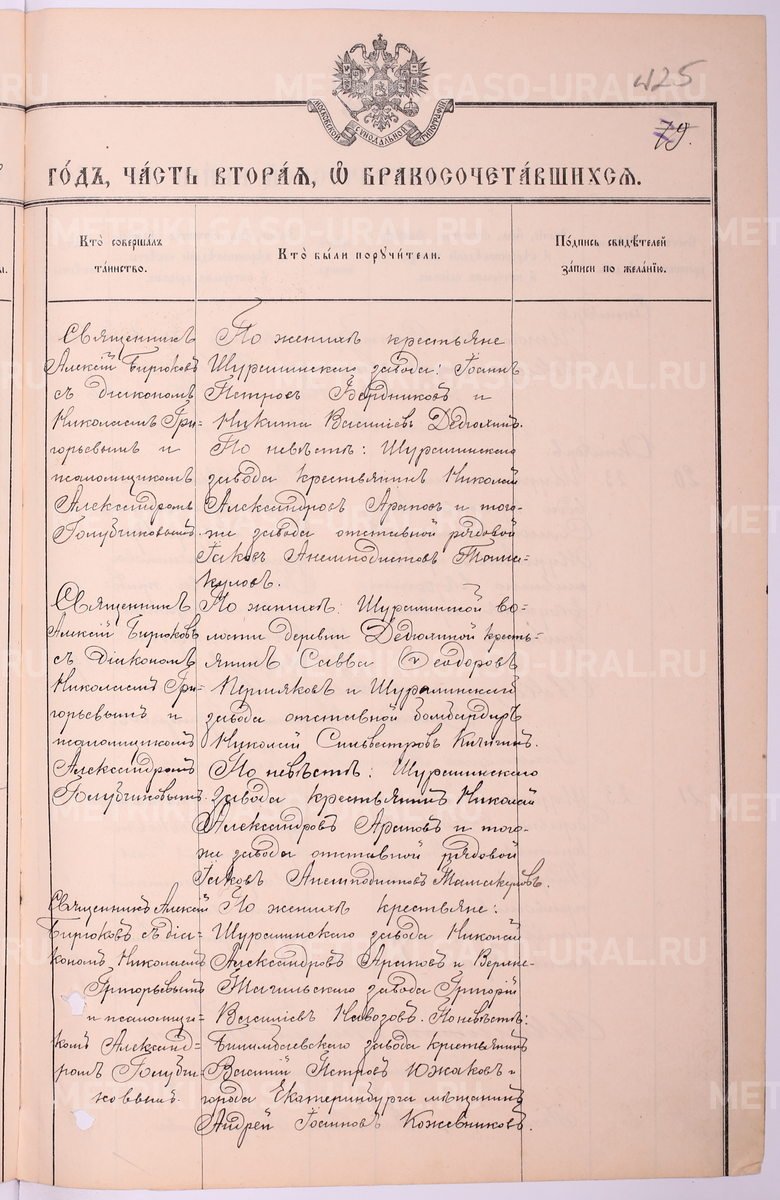 425
79.
МОСКОВСКОЙ СѴНОДАЛЬНОЙ ТИПОГРАФІИ
ГО́ДЪ, ЧА́СТЬ ВТОРА́Ѧ, Ѽ БРАКОСОЧЕТА́ВШИХСѦ.
Кто̀ соверша́лъ
та́инство.
Кто̀ бы́ли порꙋчи́тели.
По́дпись свидѣ́телей
за́писи по жела́нїю.
Священникъ
Алексій Бирюковъ
съ діакономъ
Николаемъ Гри-
горьевымъ и
псаломщикомъ
Александромъ
Голубчиковымъ.
По женихѣ крестьяне
Шуралинскаго завода: Іоаннъ
Петровъ Бердниковъ и
Никита Васильевъ Дедюхинъ.
По невѣстѣ: Шуралинскаго
завода крестьянинъ Николай
Александровъ Араповъ и того-
же завода отставной рядовой
Іаковъ Анемподистовъ Мама-
куловъ.
Священникъ
Алексій Бирюковъ
съ діакономъ
Николаемъ Гри-
горьевымъ и
псаломщикомъ
Александромъ
Голубчиковымъ.
По женихѣ: Шуралинской во-
лости деревни кресть-
янинъ Савва Ѳеодоровъ
Пермяковъ и Шуралинскаго
завода отставной бомбардиръ
Николай Сильвестровъ Кичигинъ.
По невѣстѣ: Шуралинскаго
завода крестьянинъ Николай
Александровъ Араповъ и того-
же завода отставной рядовой
Іаковъ Анемподистовъ Мамакуловъ.
Священникъ Алексій
Бирюковъ съ діа-
кономъ Николаемъ
Григорьевымъ
и псаломщи-
комъ Александ-
ромъ Голубчи-
ковымъ.
По женихѣ крестьяне:
Шуралинскаго завода Николай
Александровъ Араповъ и Верхне-
Тагильскаго завода Григорій
Васильевъ . По невѣстѣ:
Билимбаевскаго завода крестьянинъ
Василій Петровъ Южаковъ и
города Екатеринбурга мѣщанинъ
Андрей Іоанновъ Кожевниковъ.
METRIKI.GASO-URAL.RU